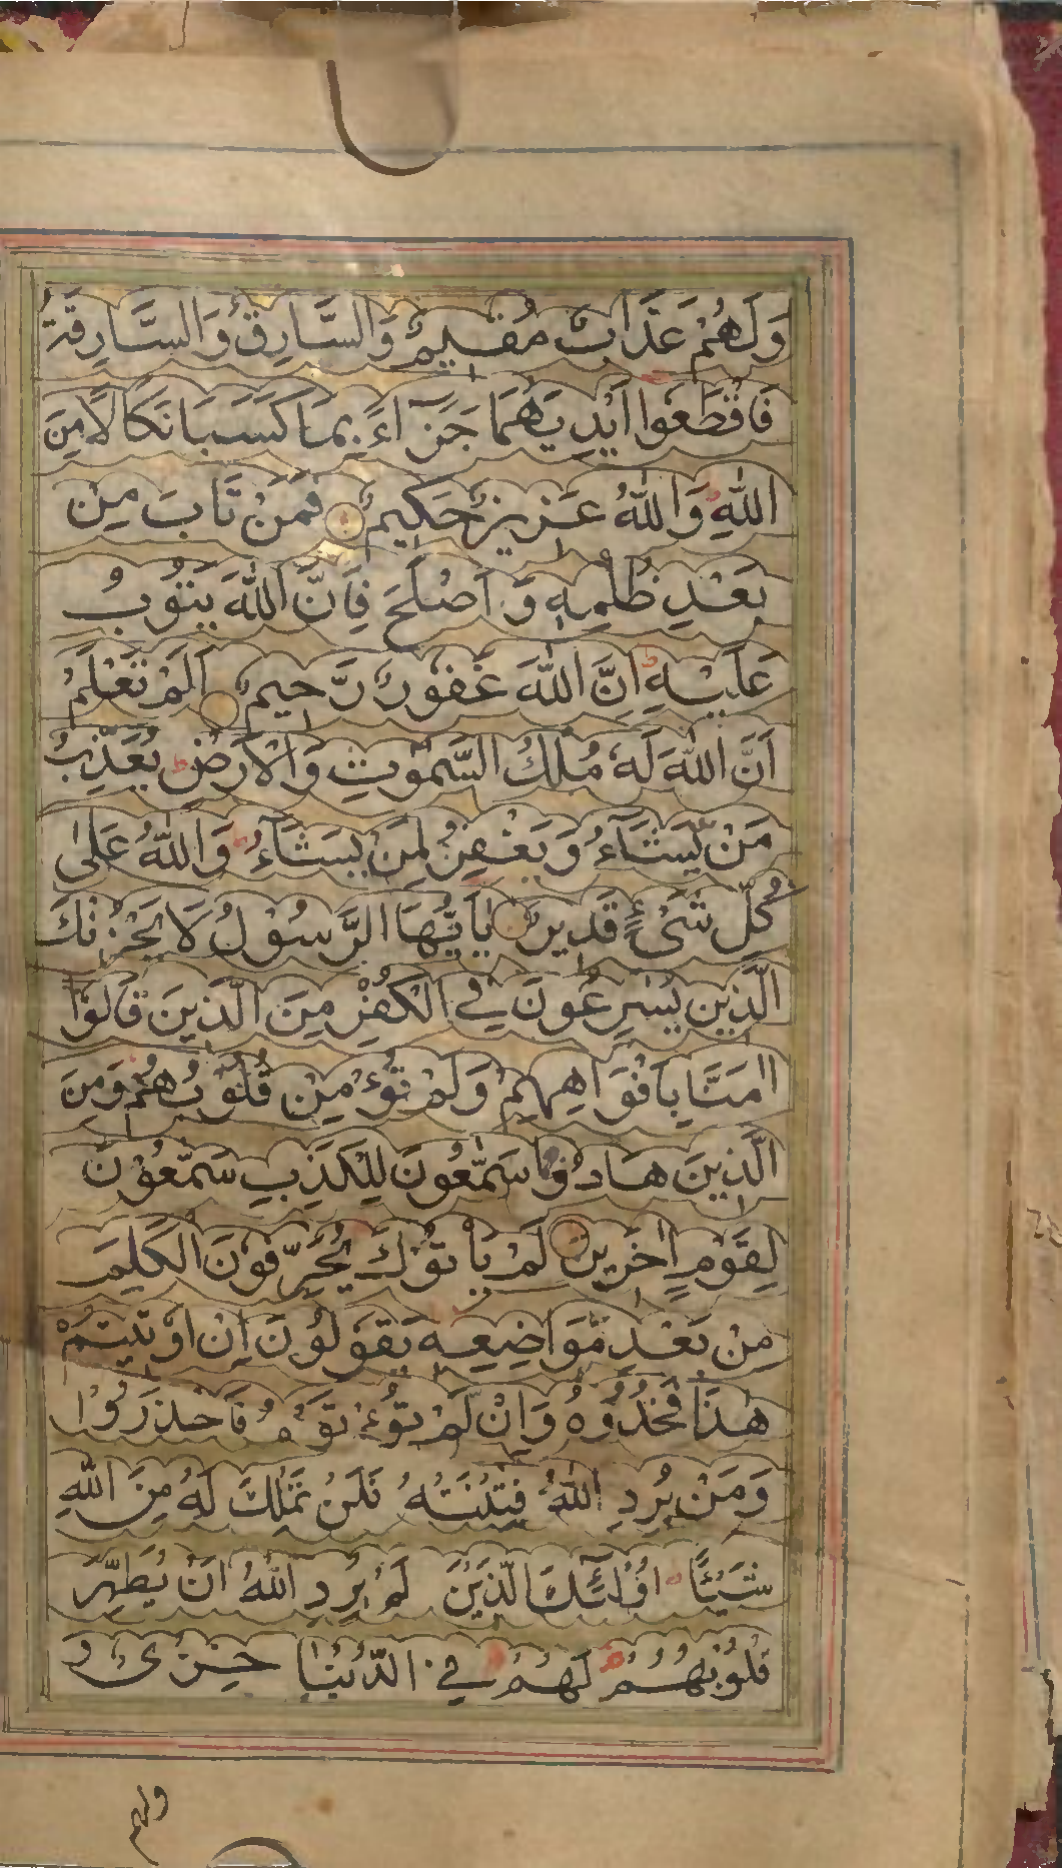 وَلَهُمْ عَذَابٌ مُقِيمٌ وَالسَّارِقُ وَالسَّارِقَةُ
فَاقْطَعُوا اَيْدِيَهُمَا جَزَآءً بِمَا كَسَبَا نَكَالًا مِنَ
اللّٰهِ وَاللّٰهُ عَزِيزٌ حَكِيمٌ فَمَنْ تَابَ مِنْ
بَعْدِ ظُلْمِهٖ وَ اَصْلَحَ فَاِنَّ اللّٰهَ يَتُوبُ
عَلَيْهِ اِنَّ اللّٰهَ غَفُورٌ رَّحِيمٌ اَلَمْ تَعْلَمْ
اَنَّ اللّٰهَ لَهٗ مُلْكُ السَّمٰوٰتِ وَالْاَرْضِ يُعَذِّبُ
مَنْ يَّشَآءُ وَ يَغْفِرُ لِمَنْ يَشَآءُ وَاللّٰهُ عَلٰى
كُلِّ شَىْءٍ قَدِيرٌ يٰاَيُّهَا الرَّسُوْلُ لَا يَحْزُنْكَ
الَّذِينَ يُسٰرِعُونَ فِى الْكُفْرِ مِنَ الَّذِينَ قَالُوْا
اٰمَنَّا بِاَفْوَاهِهِمْ وَلَمْ تُؤْمِنْ قُلُوْبُهُمْ وَمِنَ
الَّذِينَ هَادُوْا سَمّٰعُونَ لِلْكَذِبِ سَمّٰعُوْنَ
لِقَوْمٍ اٰخَرِينَ لَمْ يَأْتُوْكَ يُحَرِّفُونَ الْكَلِمَ
مِنْ بَعْدِ مَوَاضِعِهٖ يَقُولُونَ اِنْ اُوْتِيتُمْ
هٰذَا فَخُذُوْهُ وَاِنْ لَمْ تُؤْتَوْهُ فَاحْذَرُوْا
وَمَنْ يُرِدِ اللّٰهُ فِتْنَتَهٗ فَلَنْ تَمْلِكَ لَهٗ مِنَ اللّٰهِ
شَيْئًا اُوْلٰٓئِكَ الَّذِيْنَ لَمْ يُرِدِ اللّٰهُ اَنْ يُطَهِّرَ
قُلُوْبَهُمْ لَهُمْ فِى الدُّنْيَا خِزْىٌ وَ
ولهم